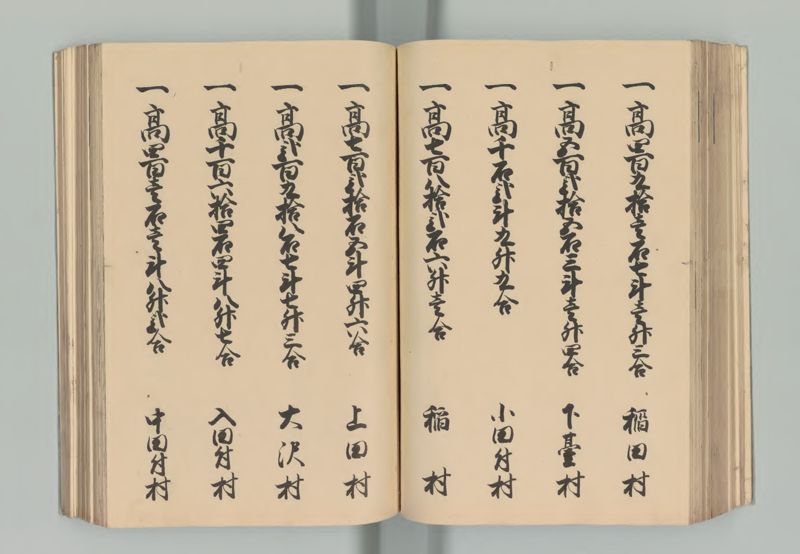 一高四百九拾壱石七斗壱升三合 稲田村
一高五百弐拾五石三斗壱升四合 下臺村
一高千石弐斗九升九合 小田付村
一高七百八拾弐石六升壱合 稲村
一高七百弐拾石五斗四升六合 上田村
一高弐百九拾八石七斗七升三合 大沢村
一高千百六拾四石四斗八升七合 入田付村
一高四百壱石壱斗八升弐合 中田付村